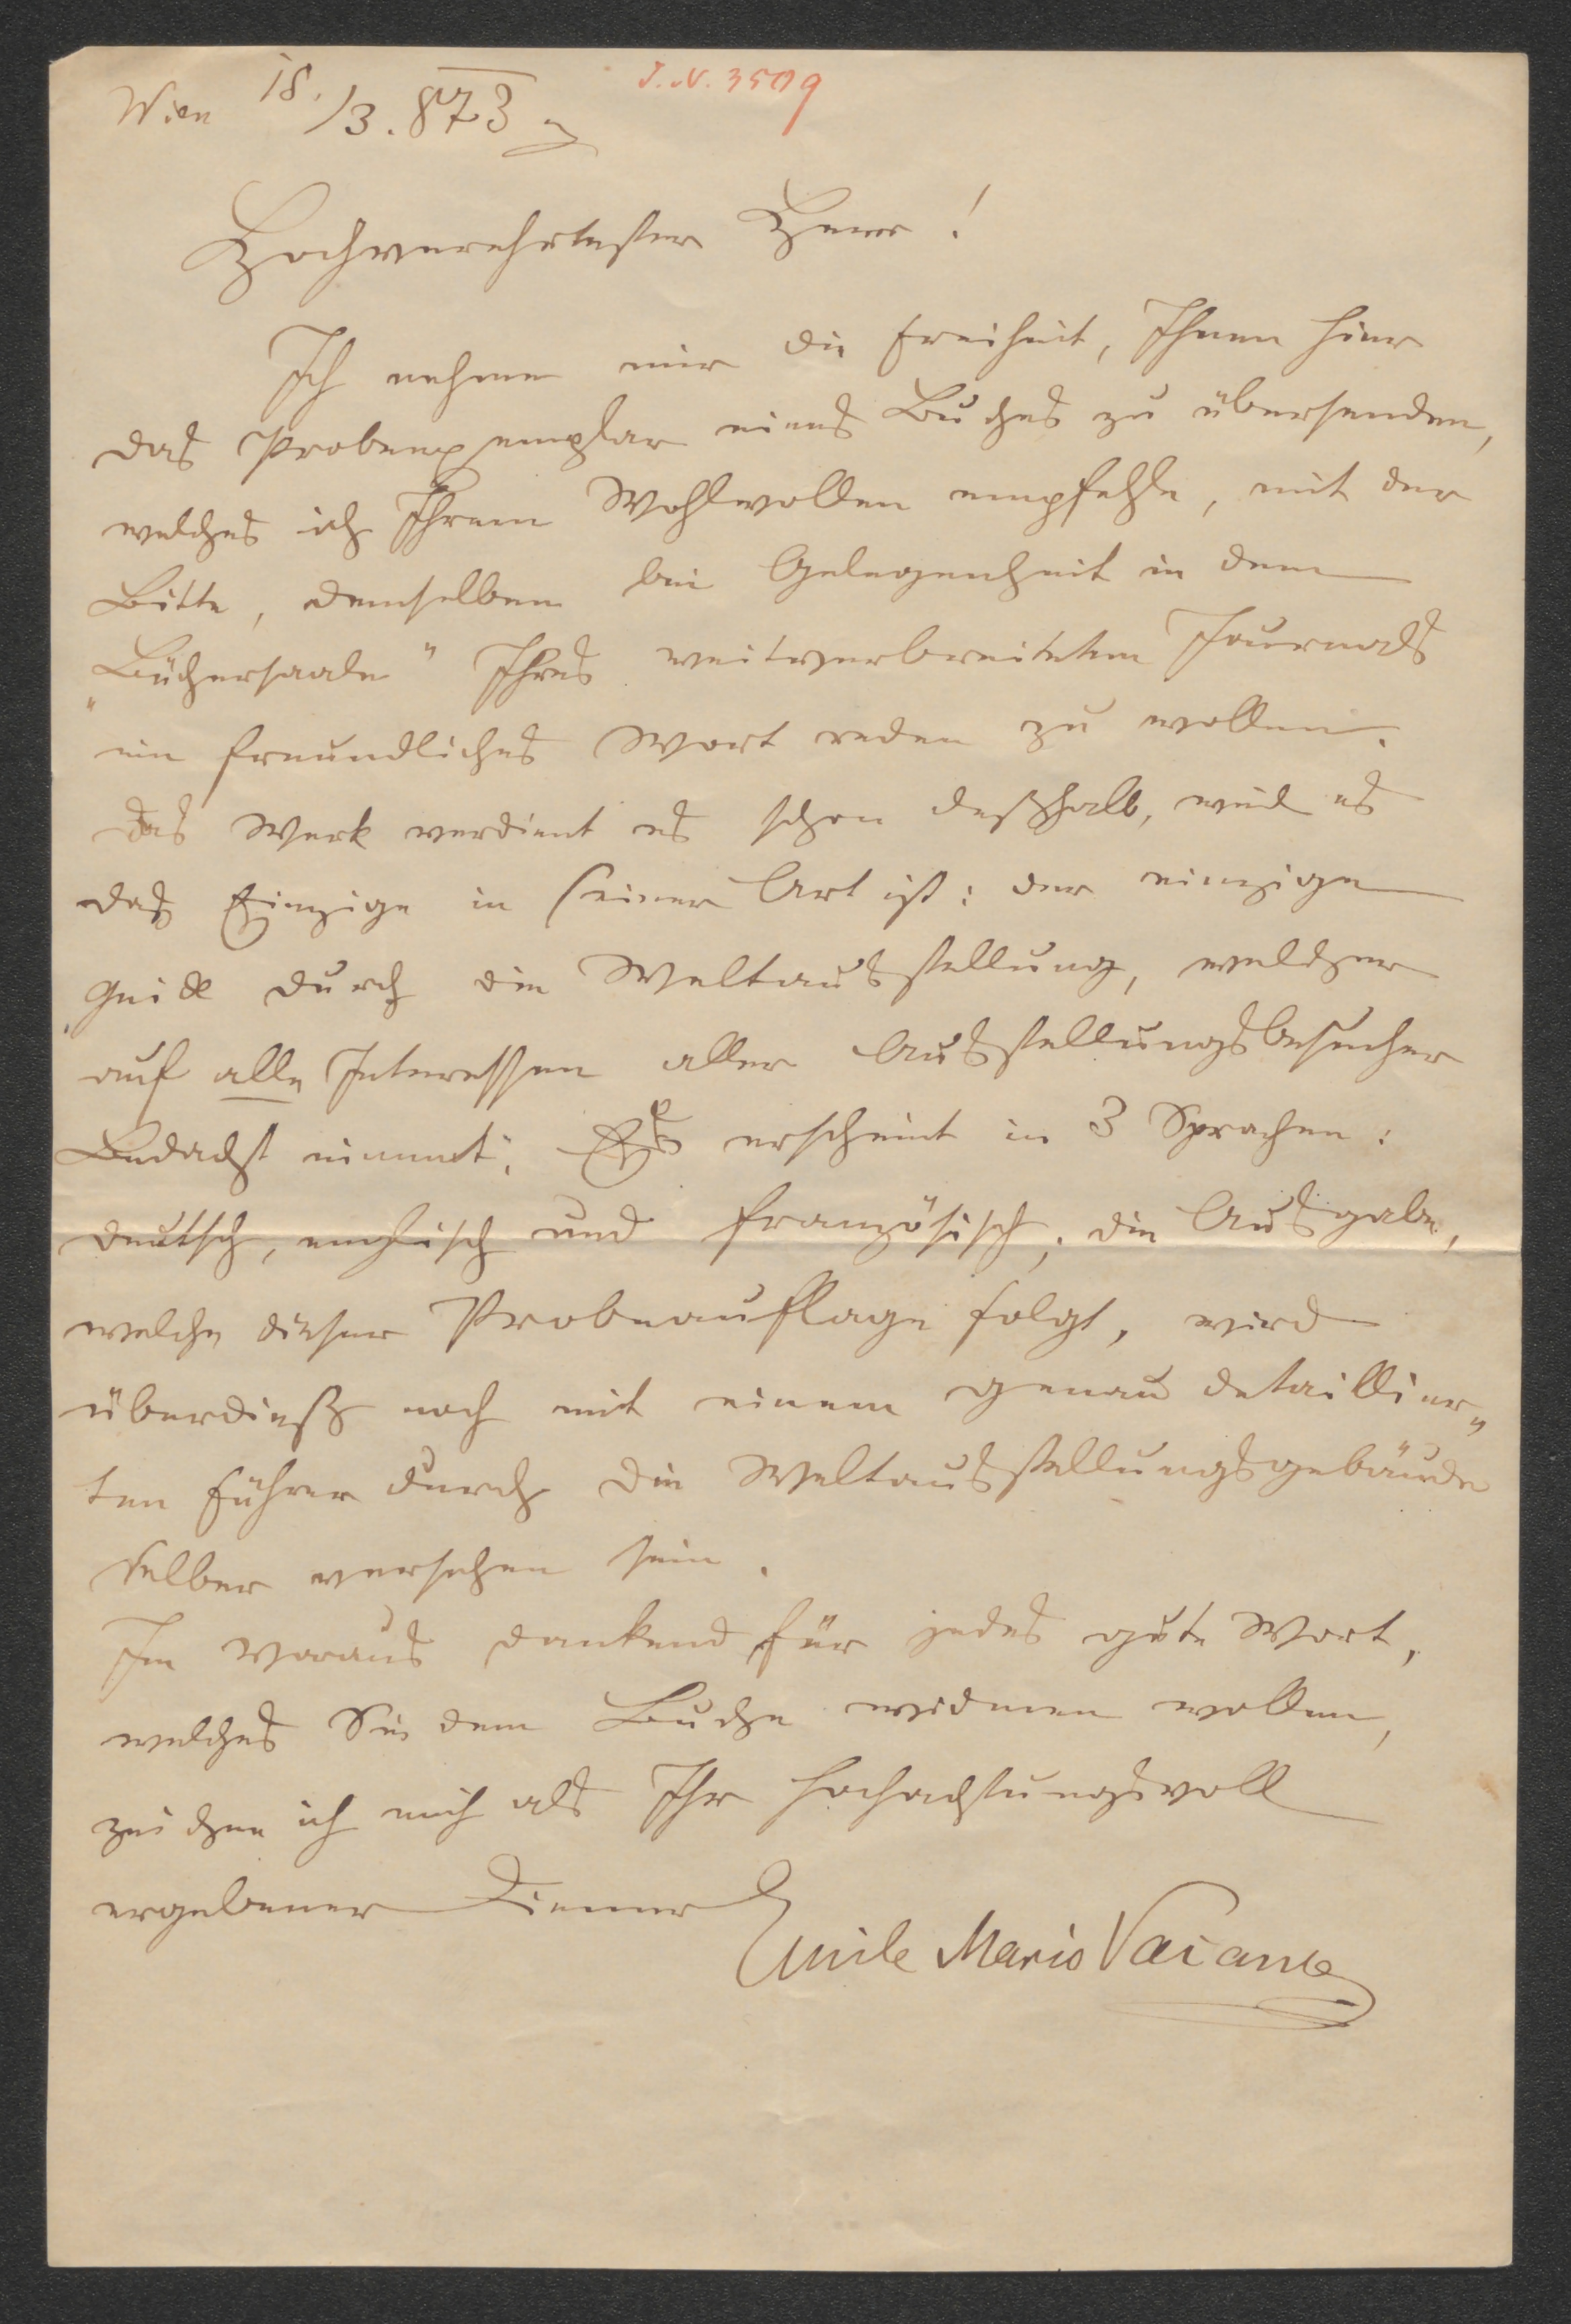 Wien 18./3. 873
J.N. 3509
Hochverehrtester Herr!
Ich nehme mir die Freiheit, Ihnen hier
das Probeexemplar eines Buches zu übersenden,
welches ich Ihrem Wohlwollen empfehle, mit der
Bitte, demselben bei Gelegenheit in dem
„Büchersaale" Ihres weitverbreiteten Journals
ein freundliches Wort reden zu wollen.
Das Werk verdient es schon deßhalb, weil es
das Einzige in seiner Art ist: der einzige
„Guide durch die Weltausstellung, welcher
auf alle Interessen aller Ausstellungsbesucher
Bedacht nimmt". Es erscheint in 3 Sprachen:
deutsch, englisch und französisch; die Ausgabe,
welche dieser Probeauflage folgt, wird
überdieß noch mit einem genau detaillier„
ten Führer durch die Weltausstellungsgebäude
selber versehen sein.
Im Voraus dankend für jedes gute Wort,
welches Sie dem Buche widmen wollen,
zeichne ich mich als Ihr hochachtungsvoll
ergebener Diener
Emile Mario Vacano